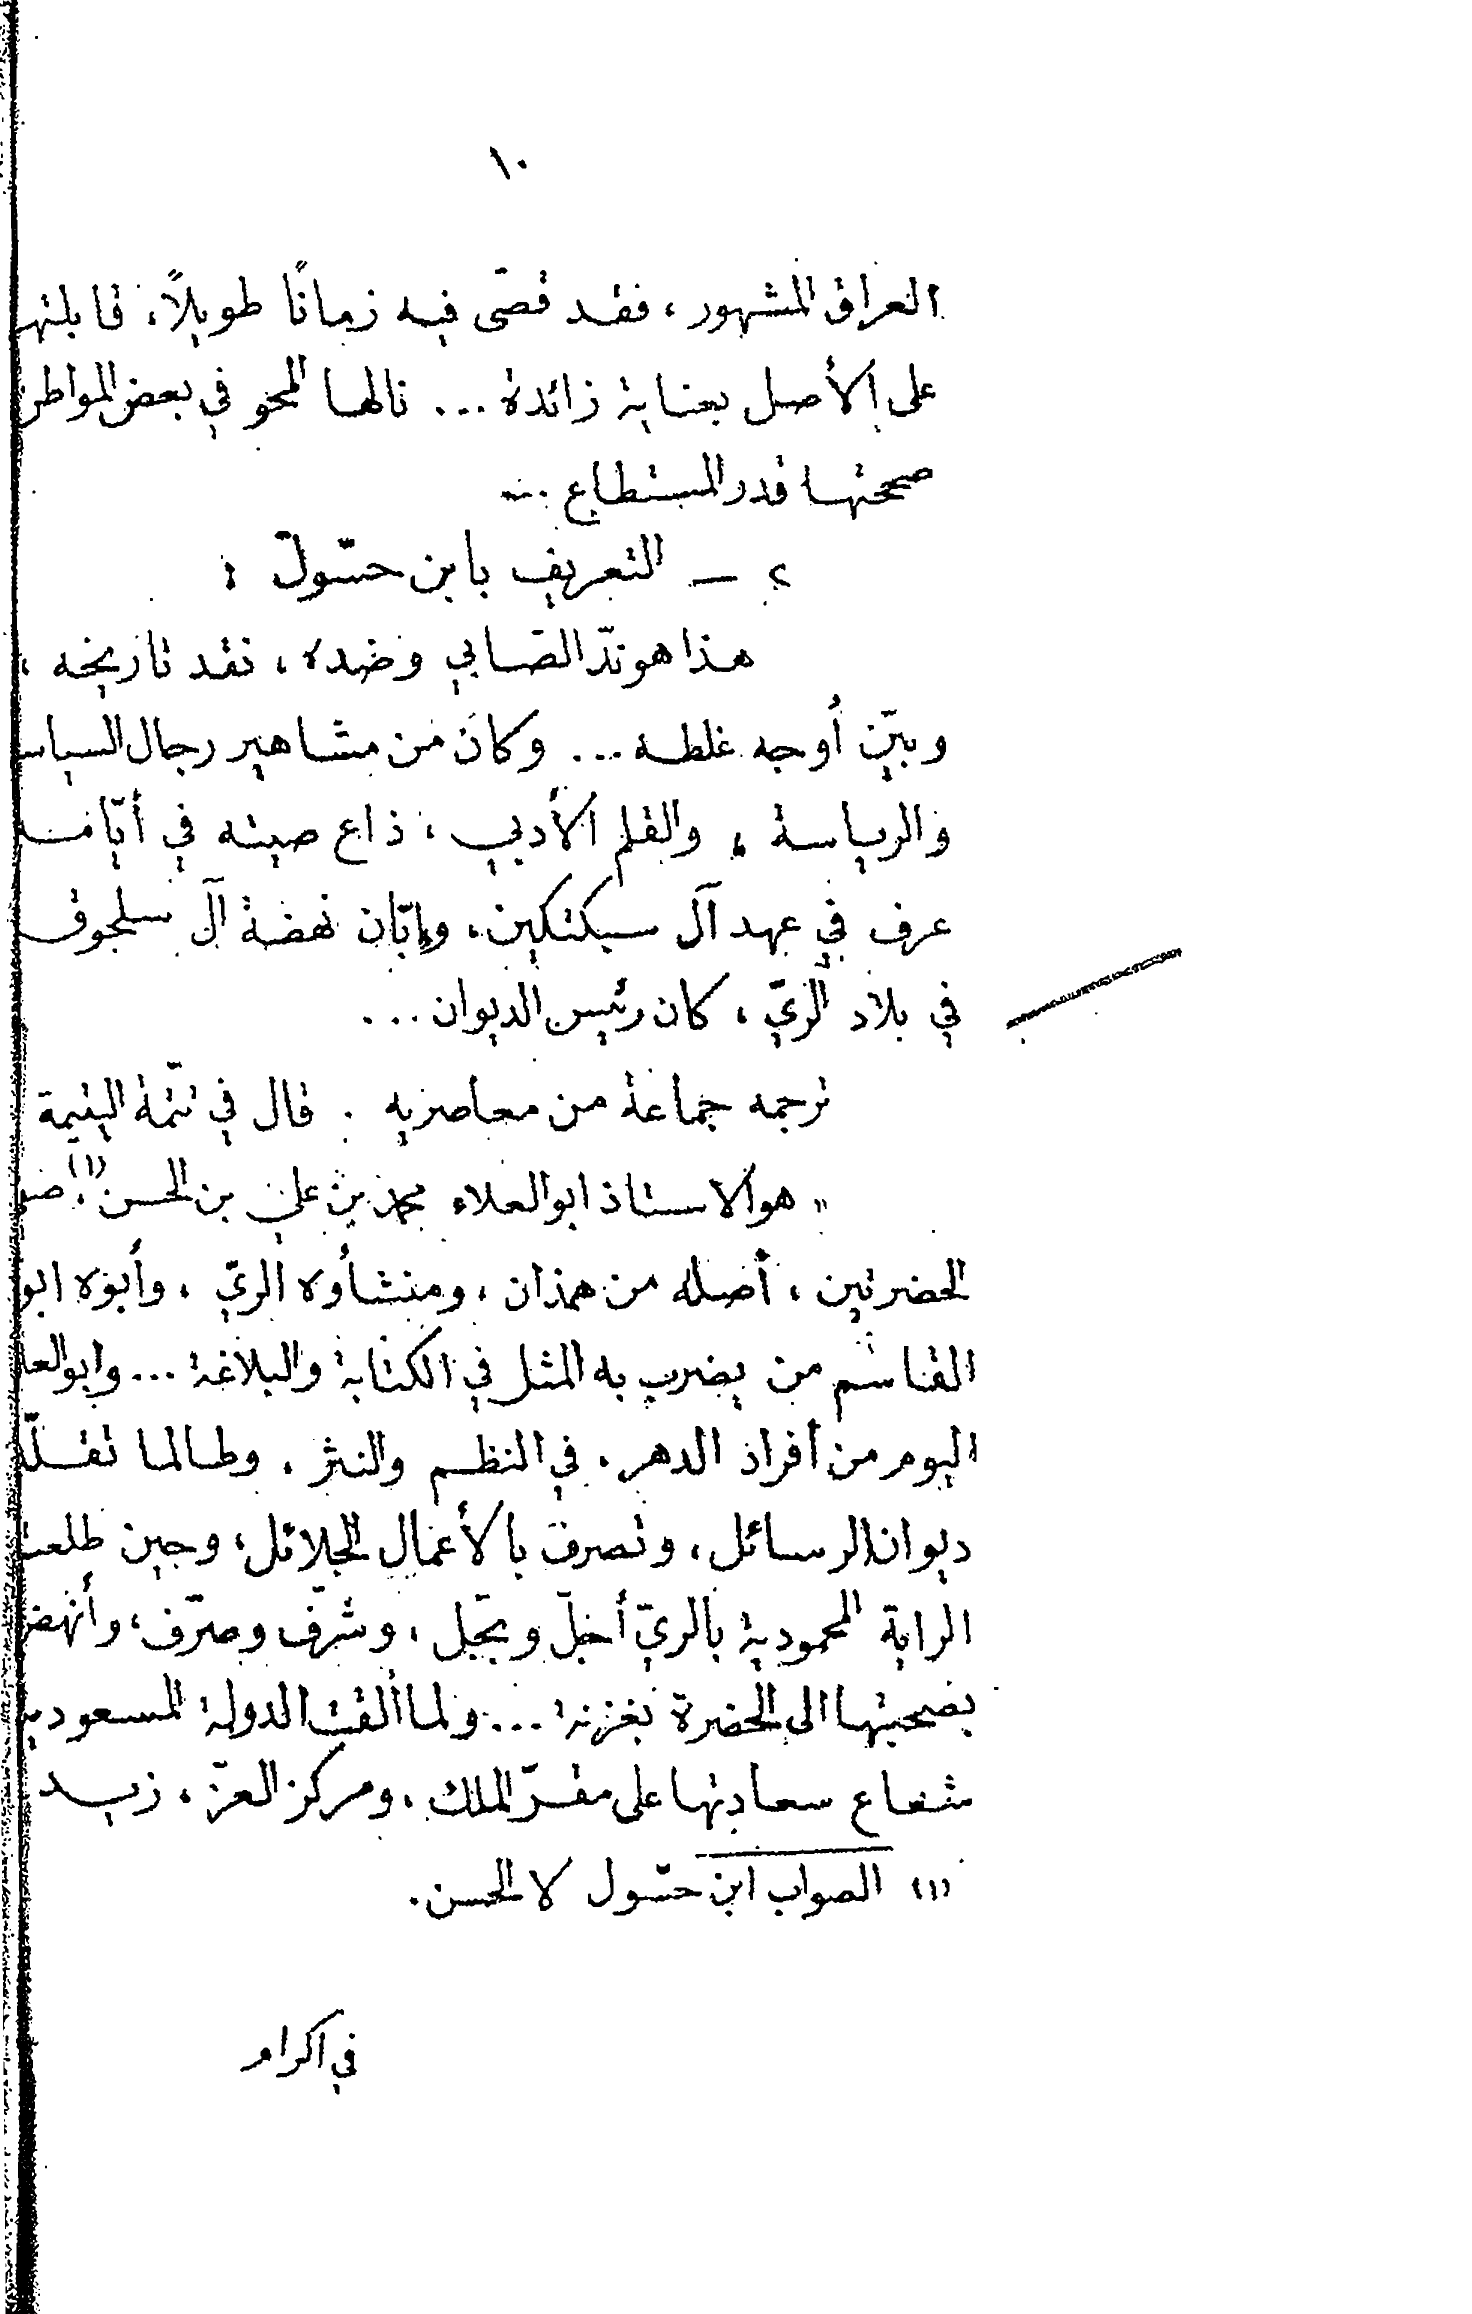 ١٠
العراق المشهور، فقد قضى فيه زمانًا طويلاً، قابلتها
على الأصل بعناية زائدة ... نالها المحو في بعض المواطن
صححتها قدر المستطاع ...
٢ — التعريف بابن حسّول :
هذا هو ندّ الصّابي وضده، نقد تاريخه،
وبيّن أوجه غلطه ... وكان من مشاهير رجال السياسـ
والرياسة، والقلم الأدبي، ذاع صيته في أيّامه
عرف في عهد آل سبكتكين، وإبّان نهضة آل سلجوق
في بلاد الريّ، كان رئيس الديوان ...
ترجمه جماعة من معاصريه . قال في تتمّة اليتيمة
« هو الاستاذ ابو العلاء محمد بن علي بن الحسن (١)،
الحضرتين، أصله من همذان، ومنشأوه الريّ، وأبوه ابو
القاسم من يضرب به المثل في الكتابة والبلاغة ... وابو العلا
اليوم من أفراد الدهر، في النظم والنثر، وطالما تقلّد
ديوان الرسائل، وتصرف بالأعمال الجلائل، وحين طلعت
الراية المحمودية بالريّ أجلّ وبجّل، وشرّف وصرّف، وأنهض
بصحبتها الى الحضرة بغزنة ... ولما ألقت الدولة المسعودية
شعاع سعادتها على مقرّ الملك، ومركز العزّ، زيد
(١) الصواب ابن حسّول لا الحسن.
في اكرام